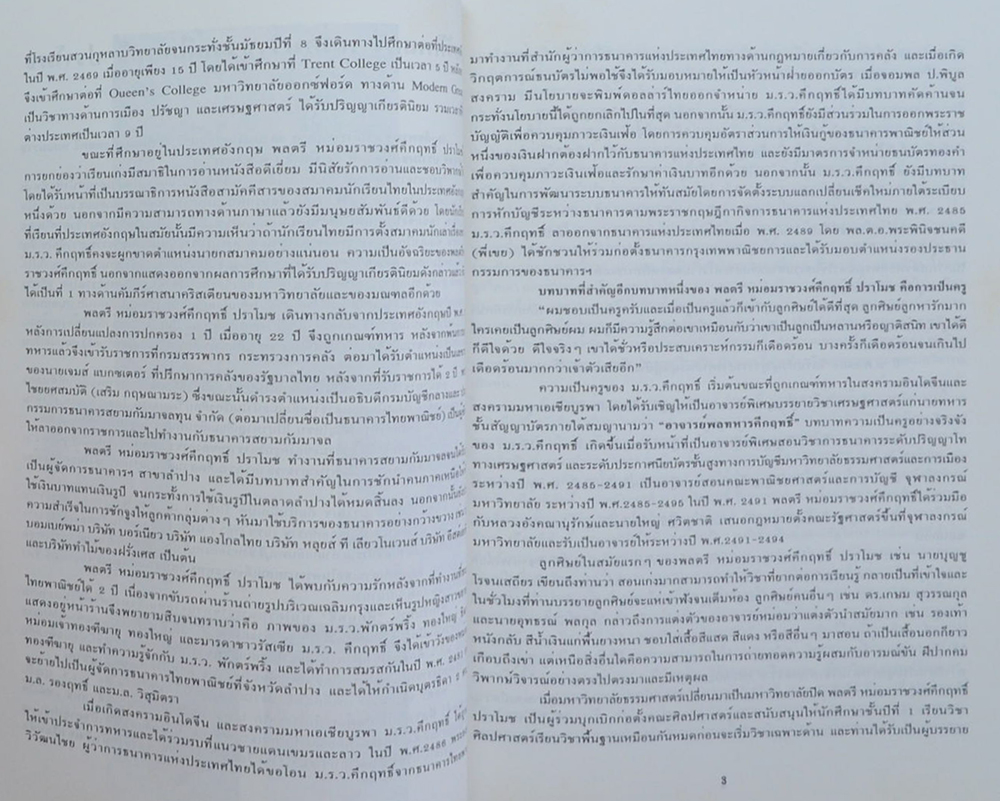 ที่โรงเรียนสวนกุหลาบวิทยาลัยจนกระทั่งชั้นมัธยมปีที่ 8 จึงเดินทางไปศึกษาต่อที่ประเทศ
ในปี พ.ศ. 2469 เมื่ออายุเพียง 15 ปี โดยได้เข้าศึกษาที่ Trent College เป็นเวลา 5 ปี
จึงเข้าศึกษาต่อที่ Oueen's College มหาวิทยาลัยออกซ์ฟอร์ด ทางด้าน Modern
เป็นวิชาทางด้านการเมือง ปรัชญา และเศรษฐศาสตร์ ได้รับปริญญาเกียรตินิยม รวมเวลา
ต่างประเทศเป็นเวลา 9 ปี
ขณะที่ศึกษาอยู่ในประเทศอังกฤษ พลตรี หม่อมราชวงศ์คึกฤทธิ์
การยกย่องว่าเรียนเก่งมีสมาธิในการอ่านหนังสือดีเยี่ยม มีนิสัยรักการอ่านและชอบวิพากษ์
โดยได้รับหน้าที่เป็นบรรณาธิการหนังสือสามัคคีสารของสมาคมนักเรียนไทยในประเทศอังกฤษ
หนึ่งด้วย นอกจากมีความสามารถทางด้านภาษาแล้วยังมีมนุษยสัมพันธ์ดีด้วย
ที่เรียนที่ประเทศอังกฤษในสมัยนั้นมีความเห็นว่าถ้านักเรียนไทยมีการตั้งสมาคมนักเล่าเรื่อง
ม.ร.ว. คึกฤทธิ์คงจะผูกขาดตำแหน่งนายกสมาคมอย่างแน่นอน ความเป็นอัจฉริยะของ
ราชวงศ์คึกฤทธิ์ นอกจากแสดงออกจากผลการศึกษาที่ได้รับปริญญาเกียรตินิยมดังกล่าวแล้ว
ได้เป็นที่ 1 ทางด้านคัมภีร์ศาสนาคริสเตียนของมหาวิทยาลัยและของมณฑลอีกด้วย
พลตรี หม่อมราชวงศ์คึกฤทธิ์ ปราโมช เดินทางกลับจากประเทศอังกฤษปี
หลังการเปลี่ยนแปลงการปกครอง 1 ปี เมื่ออายุ 22 ปี จึงถูกเกณฑ์ทหาร หลังจาก
ทหารแล้วจึงเข้ารับราชการที่กรมสรรพากร กระทรวงการคลัง ต่อมาได้รับตำแหน่งเป็น
ของนายเจมส์ แบกซเตอร์ ที่ปรึกษาการคลังของรัฐบาลไทย หลังจากที่รับราชการได้ 2 ปี
ไชยยศสมบัติ (เสริม กฤษณามระ) ซึ่งขณะนั้นดำรงตำแหน่งเป็นอธิบดีกรมบัญชีกลางและ
กรรมการธนาคารสยามกัมมาจลทุน จำกัด (ต่อมาเปลี่ยนชื่อเป็นธนาคารไทยพาณิชย์)
ให้ลาออกจากราชการและไปทำงานกับธนาคารสยามกัมมาจล
พลตรี หม่อมราชวงศ์คึกฤทธิ์ ปราโมช ทำงานที่ธนาคารสยามกัมมาจลจน
เป็นผู้จัดการธนาคารฯ สาขาลำปาง และได้มีบทบาทสำคัญในการชักนำคนภาคเหนือ
ใช้เงินบาทแทนเงินรูปี จนกระทั่งการใช้เงินรูปีในตลาดลำปางได้หมดสิ้นลง นอกจากนั้น
ความสำเร็จในการชักจูงให้ลูกค้ากลุ่มต่างๆ หันมาใช้บริการของธนาคารอย่างกว้างขวาง
บอมเบย์พม่า บริษัท บอร์เนียว บริษัท แองโกลไทย บริษัท หลุยส์ ที เลียวโนเวนส์ บริษัท
และบริษัททำไม้ของฝรั่งเศส เป็นต้น
พลตรี หม่อมราชวงศ์คึกฤทธิ์ ปราโมช ได้พบกับความรักหลังจากที่ทำงาน
ไทยพาณิชย์ได้ 2 ปี เนื่องจากขับรถผ่านร้านถ่ายรูปบริเวณเฉลิมกรุงและเห็นรูปหญิงสาว
แสดงอยู่หน้าร้านจึงพยายามสืบจนทราบว่าคือ ภาพของ ม.ร.ว.พักตร์พริ้ง ทองใหญ่
หม่อมเจ้าทองฑีฆายุ ทองใหญ่ และมารดาชาวรัสเซีย ม.ร.ว. คึกฤทธิ์ จึงได้เข้าวังของ
ทองฑีฆายุ และทำความรู้จักกับ ม.ร.ว. พักตร์พริ้ง และได้ทำการสมรสกันในปี พ.ศ.
จะย้ายไปเป็นผู้จัดการธนาคารไทยพาณิชย์ที่จังหวัดลำปาง และได้ให้กำเนิดบุตรธิดา 2
ม.ล. รองฤทธิ์ และม.ล. วิสุมิตรา
เมื่อเกิดสงครามอินโดจีน และสงครามมหาเอเชียบูรพา ม.ร.ว.คึกฤทธิ์
ให้เข้าประจำการทหารและได้ร่วมรบที่แนวชายแดนเขมรและลาว ในปี พ.ศ.2486
วิวัฒนไชย ผู้ว่าการธนาคารแห่งประเทศไทยได้ขอโอน ม.ร.ว.คึกฤทธิ์จากธนาคาร
มาทำงานที่สำนักผู้ว่าการธนาคารแห่งประเทศไทยทางด้านกฎหมายเกี่ยวกับการคลัง และเมื่อเกิด
วิกฤตการณ์ธนบัตรไม่พอใช้จึงได้รับมอบหมายให้เป็นหัวหน้าฝ่ายออกบัตร เมื่อจอมพล ป.พิบูล
สงคราม มีนโยบายจะพิมพ์ดอลล่าร์ไทยออกจำหน่าย ม.ร.ว.คึกฤทธิ์ได้มีบทบาทคัดค้านจน
กระทั่งนโยบายนี้ได้ถูกยกเลิกไปในที่สุด นอกจากนั้น ม.ร.ว.คึกฤทธิ์ยังมีส่วนร่วมในการออกพระราช
บัญญัติเพื่อควบคุมภาวะเงินเฟ้อ โดยการควบคุมอัตราส่วนการให้เงินกู้ของธนาคารพาณิชย์ให้ส่วน
หนึ่งของเงินฝากต้องฝากไว้กับธนาคารแห่งประเทศไทย และยังมีมาตรการจำหน่ายธนบัตรทองคำ
เพื่อควบคุมภาวะเงินเฟ้อและรักษาค่าเงินบาทอีกด้วย นอกจากนั้น ม.ร.ว.คึกฤทธิ์ ยังมีบทบาท
สำคัญในการพัฒนาระบบธนาคารให้ทันสมัยโดยการจัดตั้งระบบแลกเปลี่ยนเช็คใหม่ภายใต้ระเบียบ
การหักบัญชีระหว่างธนาคารตามพระราชกฤษฎีกากิจการธนาคารแห่งประเทศไทย พ.ศ. 2485
ม.ร.ว.คึกฤทธิ์ ลาออกจากธนาคารแห่งประเทศไทยเมื่อ พ.ศ. 2489 โดย พล.ต.อ.พระพินิจชนคดี
(พี่เขย) ได้ชักชวนให้ร่วมก่อตั้งธนาคารกรุงเทพพาณิชยการและได้รับมอบตำแหน่งรองประธาน
กรรมการของธนาคารฯ
บทบาทที่สำคัญอีกบทบาทหนึ่งของ พลตรี หม่อมราชวงศ์คึกฤทธิ์ ปราโมช คือการเป็นครู
"ผมชอบเป็นครูครับและเมื่อเป็นครูแล้วก็เข้ากับลูกศิษย์ได้ดีที่สุด ลูกศิษย์ลูกหารักมาก
ใครเคยเป็นลูกศิษย์ผม ผมก็มีความรู้สึกต่อเขาเหมือนกับว่าเขาเป็นลูกเป็นหลานหรือญาติสนิท เขาได้ดี
ก็ดีใจด้วย ดีใจจริงๆ เขาได้ชั่วหรือประสบเคราะห์กรรมก็เดือดร้อน บางครั้งก็เดือดร้อนจนเกินไป
เดือดร้อนมากกว่าเจ้าตัวเสียอีก"
ความเป็นครูของ ม.ร.ว.คึกฤทธิ์ เริ่มต้นขณะที่ถูกเกณฑ์ทหารในสงครามอินโดจีนและ
สงครามมหาเอเชียบูรพา โดยได้รับเชิญให้เป็นอาจารย์พิเศษบรรยายวิชาเศรษฐศาสตร์แก่นายทหาร
ชั้นสัญญาบัตรภายใต้สมญานามว่า "อาจารย์พลทหารคึกฤทธิ์" บทบาทความเป็นครูอย่างจริงจัง
ของ ม.ร.ว.คึกฤทธิ์ เกิดขึ้นเมื่อรับหน้าที่เป็นอาจารย์พิเศษสอนวิชาการธนาคารระดับปริญญาโท
ทางเศรษฐศาสตร์ และระดับประกาศนียบัตรชั้นสูงทางการบัญชีมหาวิทยาลัยธรรมศาสตร์และการเมือง
ระหว่างปี พ.ศ. 2485-2491 เป็นอาจารย์สอนคณะพาณิชยศาสตร์และการบัญชี จุฬาลงกรณ์
มหาวิทยาลัย ระหว่างปี พ.ศ.2485-2495 ในปี พ.ศ. 2491 พลตรี หม่อมราชวงศ์คึกฤทธิ์ได้ร่วมมือ
กับหลวงอังคณานุรักษ์และนายใหญ่ ศวิตชาติ เสนอกฎหมายตั้งคณะรัฐศาสตร์ขึ้นที่จุฬาลงกรณ์
มหาวิทยาลัยและรับเป็นอาจารย์ให้ระหว่างปี พ.ศ.2491-2494
ลูกศิษย์ในสมัยแรกๆ ของพลตรี หม่อมราชวงศ์คึกฤทธิ์ ปราโมช เช่น นายบุญชู
โรจนเสถียร เขียนถึงท่านว่า สอนเก่งมากสามารถทำให้วิชาที่ยากต่อการเรียนรู้ กลายเป็นที่เข้าใจและ
ในชั่วโมงที่ท่านบรรยายลูกศิษย์จะแห่เข้าฟังจนเต็มห้อง ลูกศิษย์คนอื่นๆ เช่น ดร.เกษม สุวรรณกุล
และนายอุทธรณ์ พลกุล กล่าวถึงการแต่งตัวของอาจารย์หม่อมว่าแต่งตัวนำสมัยมาก เช่น รองเท้า
หนังกลับ สีน้ำเงินแก่พื้นยางหนา ชอบใส่เสื้อสีแสด สีแดง หรือสีอื่นๆ มาสอน ถ้าเป็นเสื้อนอกก็ยาว
เกือบถึงเข่า แต่เหนือสิ่งอื่นใดคือความสามารถในการถ่ายทอดความรู้ผสมกับอารมณ์ขัน ฝีปากคม
วิพากษ์วิจารณ์อย่างตรงไปตรงมาและมีเหตุผล
เมื่อมหาวิทยาลัยธรรมศาสตร์เปลี่ยนมาเป็นมหาวิทยาลัยปิด พลตรี หม่อมราชวงศ์คึกฤทธิ์
ปราโมช เป็นผู้ร่วมบุกเบิกก่อตั้งคณะศิลปศาสตร์และสนับสนุนให้นักศึกษาชั้นปีที่ 1 เรียนวิชา
ศิลปศาสตร์เรียนวิชาพื้นฐานเหมือนกันหมดก่อนจะเริ่มวิชาเฉพาะด้าน และท่านได้รับเป็นผู้บรรยาย
3